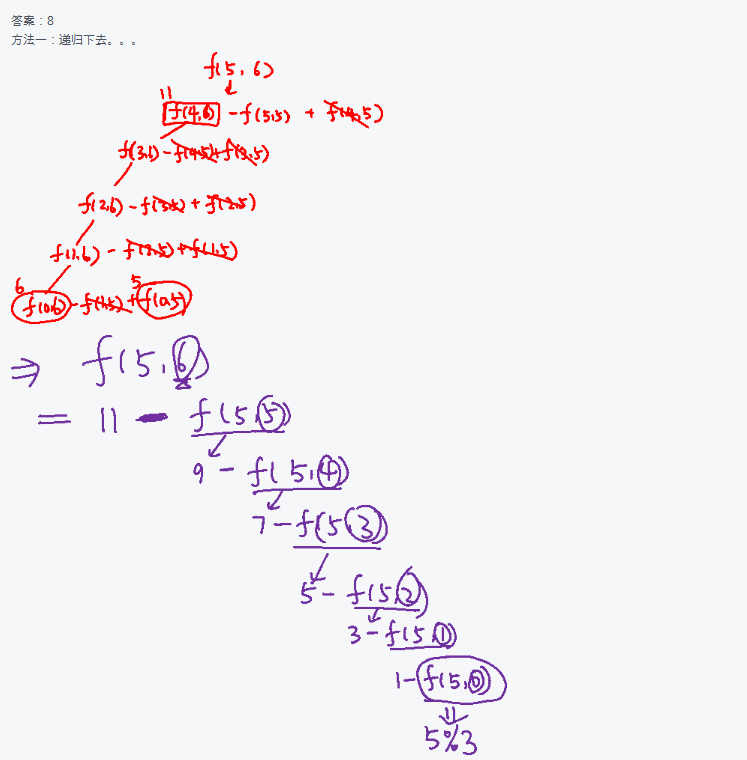 答案：8
方法一：递归下去。。。
f(5,6)
11
f(4,6) - f(5,5) + f(4,5)
f(3,6) - f(4,5) + f(3,5)
f(2,6) - f(3,5) + f(2,5)
f(1,6) - f(2,5) + f(1,5)
6 5
f(0,6) - f(1,5) + f(0,5)
⇒ f(5,6)
= 11 - f(5,5)
9 - f(5,4)
7 - f(5,3)
5 - f(5,2)
3 - f(5,1)
1 - f(5,0)
5%3